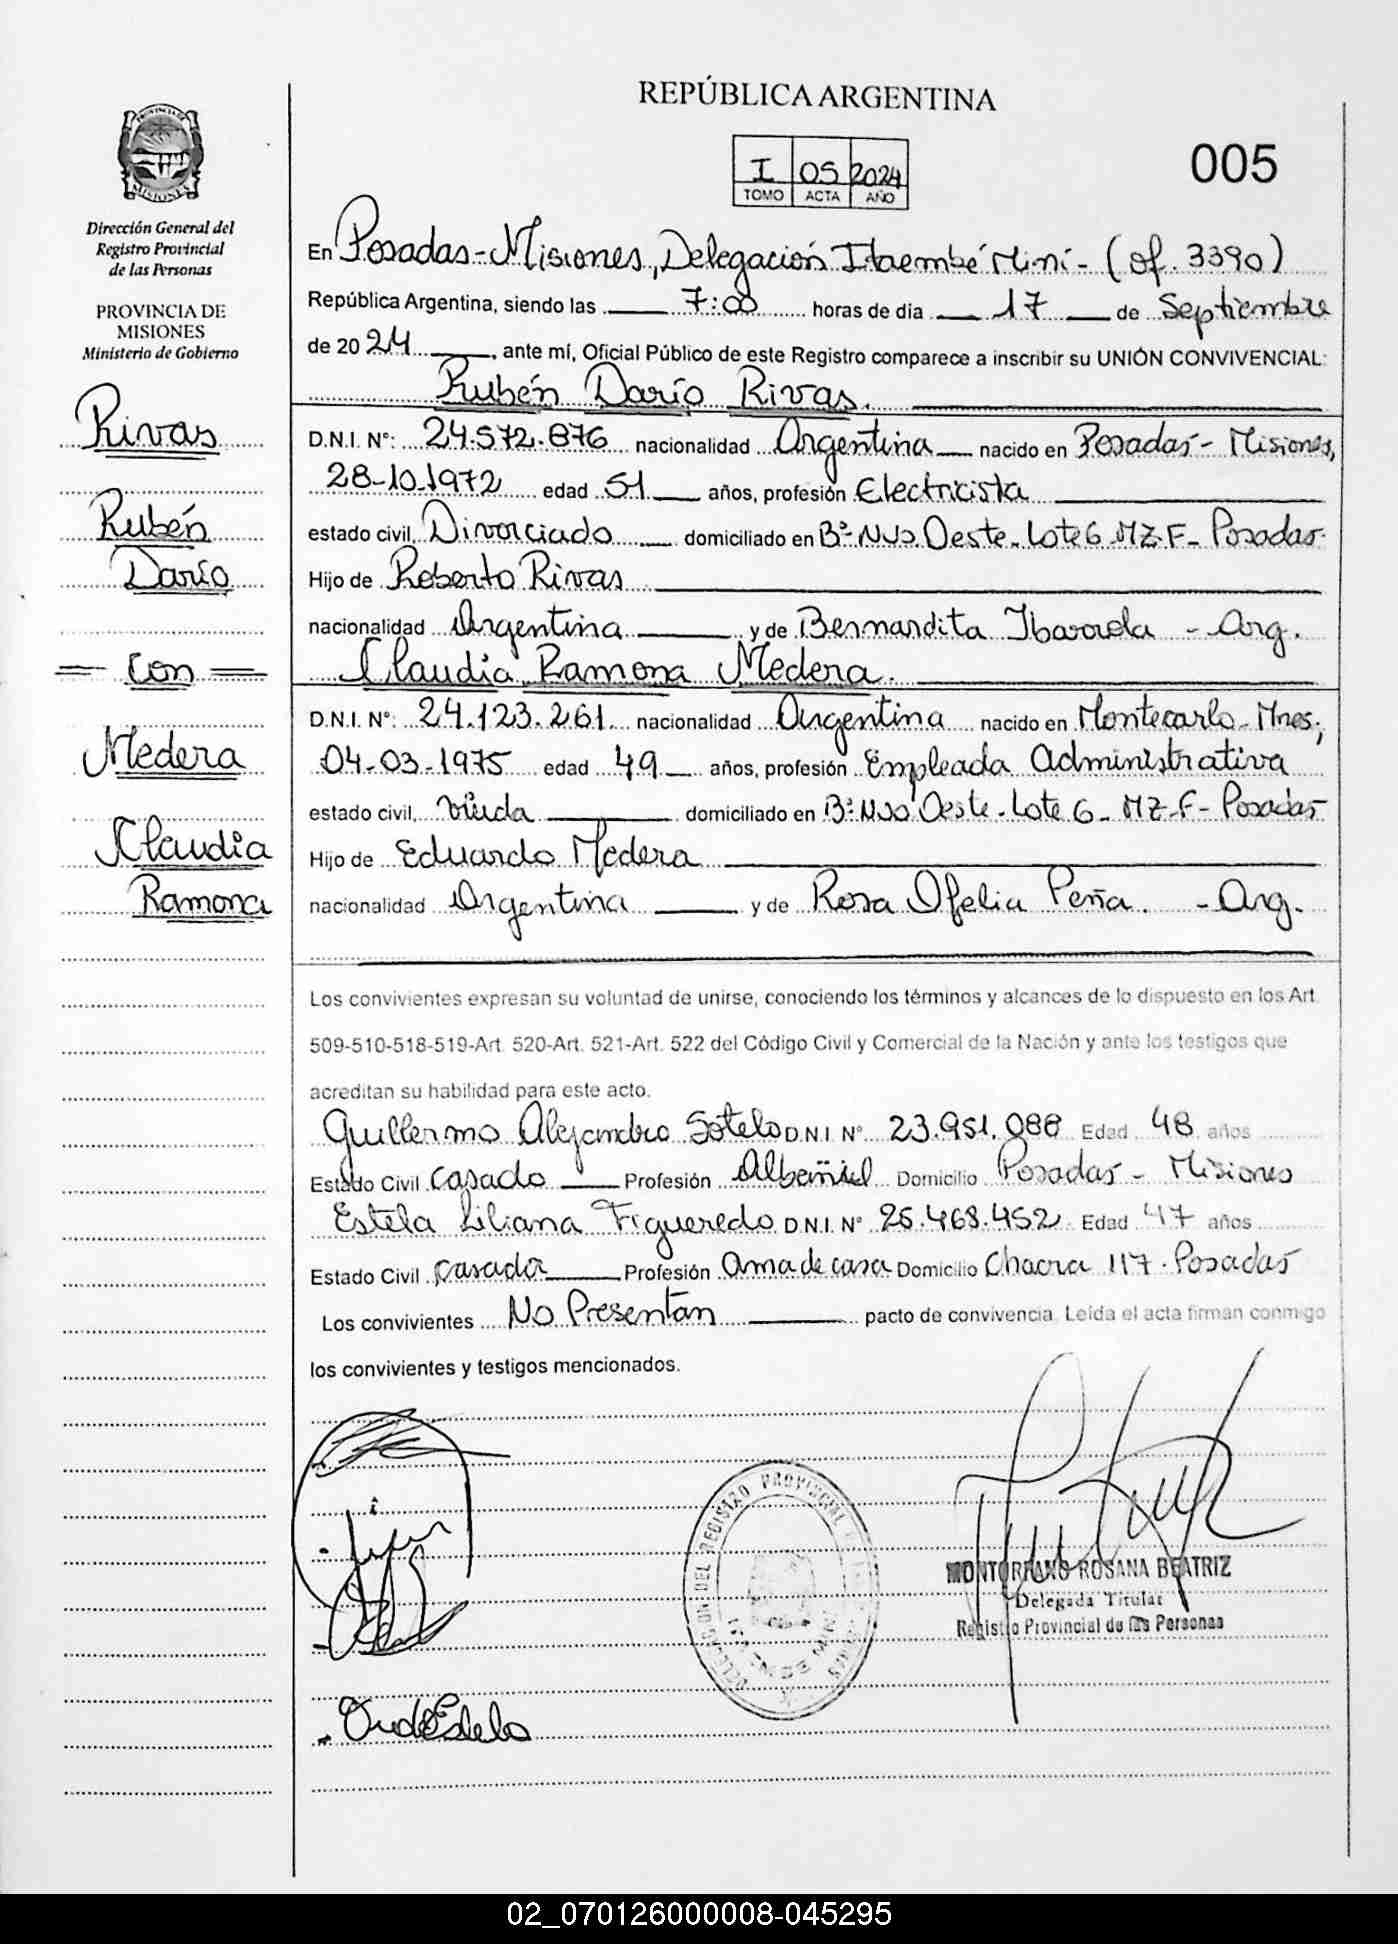 REPÚBLICA ARGENTINA
I 05 2024
TOMO ACTA AÑO
005
PROVINCIA DE
MISIONES
Dirección General del
Registro Provincial
de las Personas
PROVINCIA DE
MISIONES
Ministerio de Gobierno
Rivas
Rubén
Darío
= Con =
Medera
Claudia
Ramona
En Posadas-Misiones, Delegación Itaembé Miní - (of. 3390)
República Argentina, siendo las 7:00 horas de dia 17 de Septiembre
de 2024, ante mí, Oficial Público de este Registro comparece a inscribir su UNIÓN CONVIVENCIAL:
Rubén Darío Rivas.
D.N.I. N°: 24.572.876 nacionalidad Argentina nacido en Posadas - Misiones,
28-10-1972 edad 51 años, profesión Electricista
estado civil, Divorciado domiciliado en B° Nvo. Oeste - Lote 6 MZ F - Posadas.
Hijo de Roberto Rivas
nacionalidad Argentina y de Bernardita Ibarrola - Arg.
Claudia Ramona Medera.
D.N.I. N°: 24.123.261 nacionalidad Argentina nacido en Montecarlo - Mnes,
04-03-1975 edad 49 años, profesión Empleada Administrativa
estado civil, Viuda domiciliado en B° Nvo Oeste - Lote 6 - MZ - F - Posadas
Hijo de Eduardo Medera
nacionalidad Argentina y de Rosa Ofelia Peña. - Arg.
Los convivientes expresan su voluntad de unirse, conociendo los términos y alcances de lo dispuesto en los Art.
509-510-518-519-Art. 520-Art. 521-Art. 522 del Código Civil y Comercial de la Nación y ante los testigos que
acreditan su habilidad para este acto.
Guillermo Alejandro Sotelo D.N.I. N° 23.951.088 Edad 48 años
Estado Civil Casado Profesión Albañil Domicilio Posadas - Misiones
Estela Liliana Figueredo D.N.I. N° 25.468.452 Edad 47 años
Estado Civil Casada Profesión Ama de casa Domicilio Chacra 117 - Posadas
Los convivientes No Presentan pacto de convivencia. Leída el acta firman conmigo
los convivientes y testigos mencionados.
DELEGACION DEL REGISTRO PROVINCIAL DE LAS PERSONAS
ITAEMBE MINI
MONTORFANO ROSANA BEATRIZ
Delegada Titular
Registro Provincial de las Personas
02_070126000008-045295